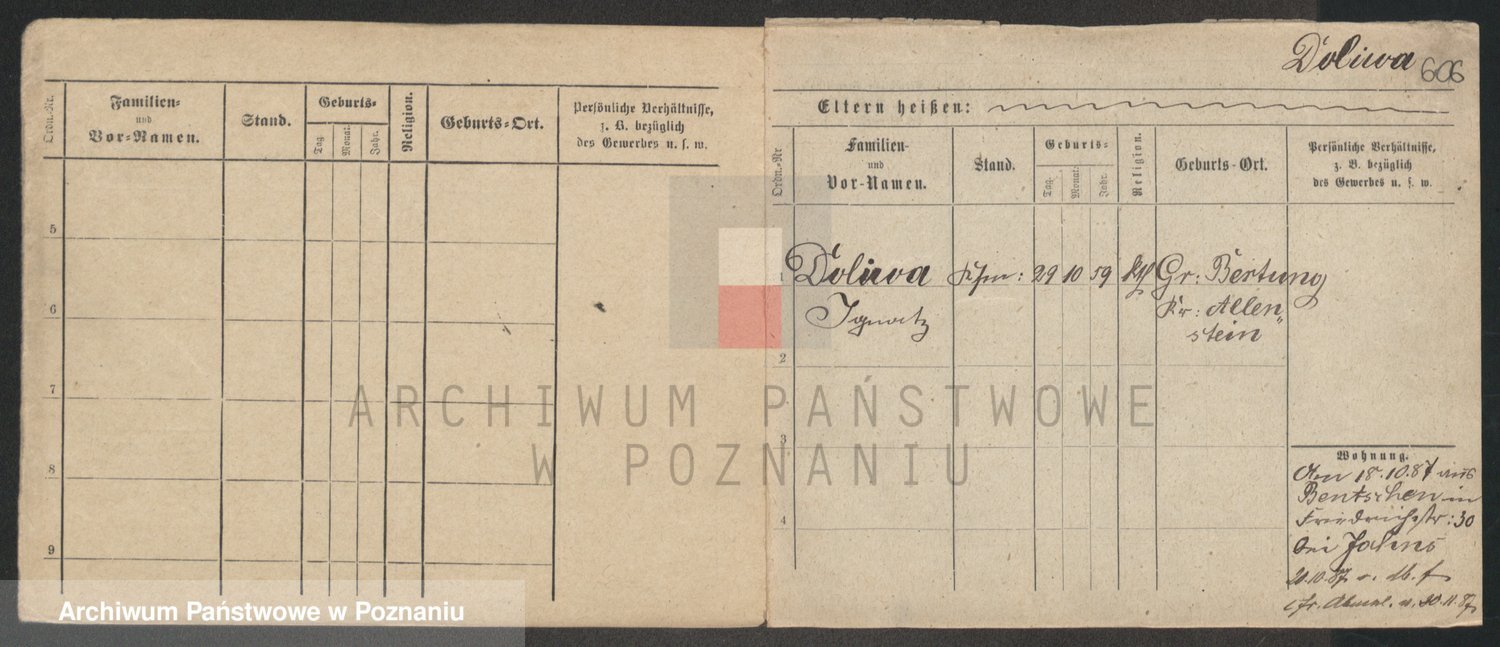 Ordn.-Nr.
Familien-
und
Vor-Namen.
Stand.
Geburts-
Tag.
Monat.
Jahr.
Religion.
Geburts-Ort.
Persönliche Verhältnisse,
z. B. bezüglich
des Gewerbes u. s. w.
5
6
7
8
9
Doliwa 606
Eltern heißen:
Ordn.-Nr
Familien-
und
Vor-Namen.
Stand.
Geburts-
Tag.
Monat.
Jahr.
Religion.
Geburts-Ort.
Persönliche Verhältnisse,
z. B. bezüglich
des Gewerbes u. s. w.
1 Doliwa 29 10 59 Gr: Bertung
Ignatz Kr: Allen„
stein
2
3
4
Wohnung.
Am 18.10.87 aus
Bentschen in
Friedrichstr: 30
bei
20.10.87
20.11.87
ARCHIWUM PAŃSTWOWE
W POZNANIU
Archiwum Państwowe w Poznaniu